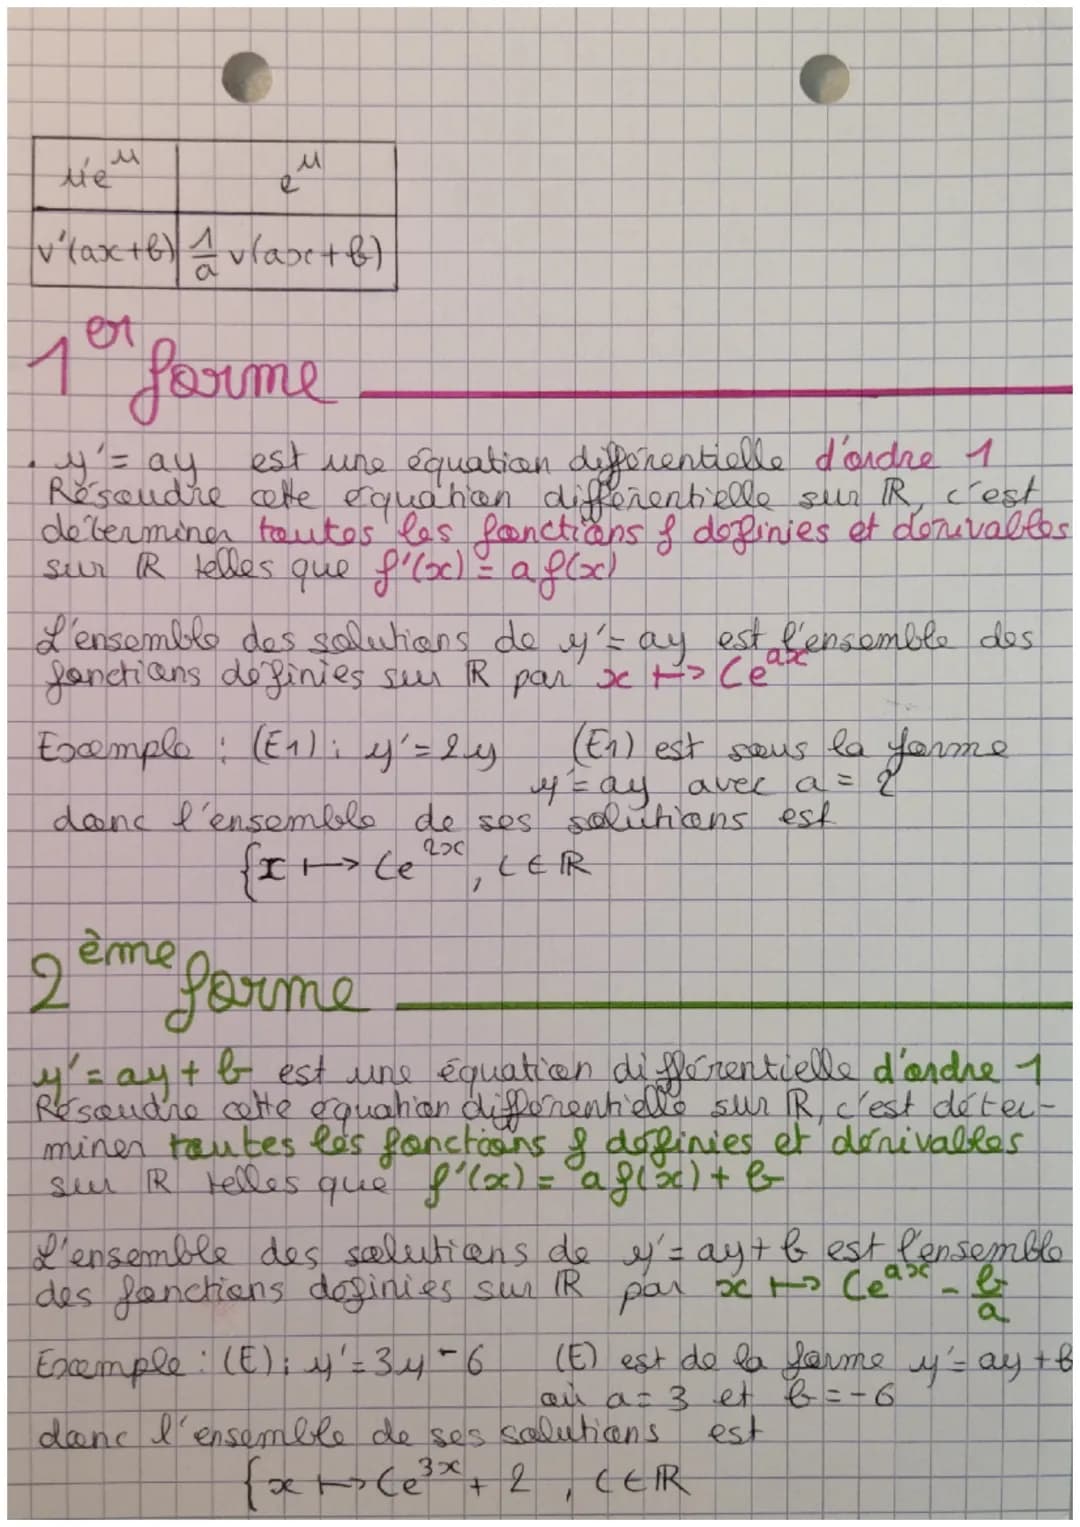 u'e^u e^u
v'(ax+b) 1/a v(ax+b)
1er forme
• y'= ay est une équation différentielle d'ordre 1
Résoudre cette équation différentielle sur ℝ, c'est
déterminer toutes les fonctions f définies et dérivables
sur ℝ telles que f'(x) = a f(x)
L'ensemble des solutions de y'= ay est l'ensemble des
fonctions définies sur ℝ par x ↦ Ce^ax
Exemple : (E1) : y'= 2y (E1) est sous la forme
y'= ay avec a = 2
donc l'ensemble de ses solutions est
{x ↦ Ce^2x, C ∈ ℝ
2ème forme
y'= ay + b est une équation différentielle d'ordre 1
Résoudre cette équation différentielle sur ℝ, c'est déter-
miner toutes les fonctions f définies et dérivables
sur ℝ telles que f'(x) = a f(x) + b
L'ensemble des solutions de y'= ay + b est l'ensemble
des fonctions définies sur ℝ par x ↦ Ce^ax - b/a
Exemple : (E) : y'= 3y - 6 (E) est de la forme y'= ay + b
où a = 3 et b = -6
donc l'ensemble de ses solutions est
{x ↦ Ce^3x + 2, C ∈ ℝ